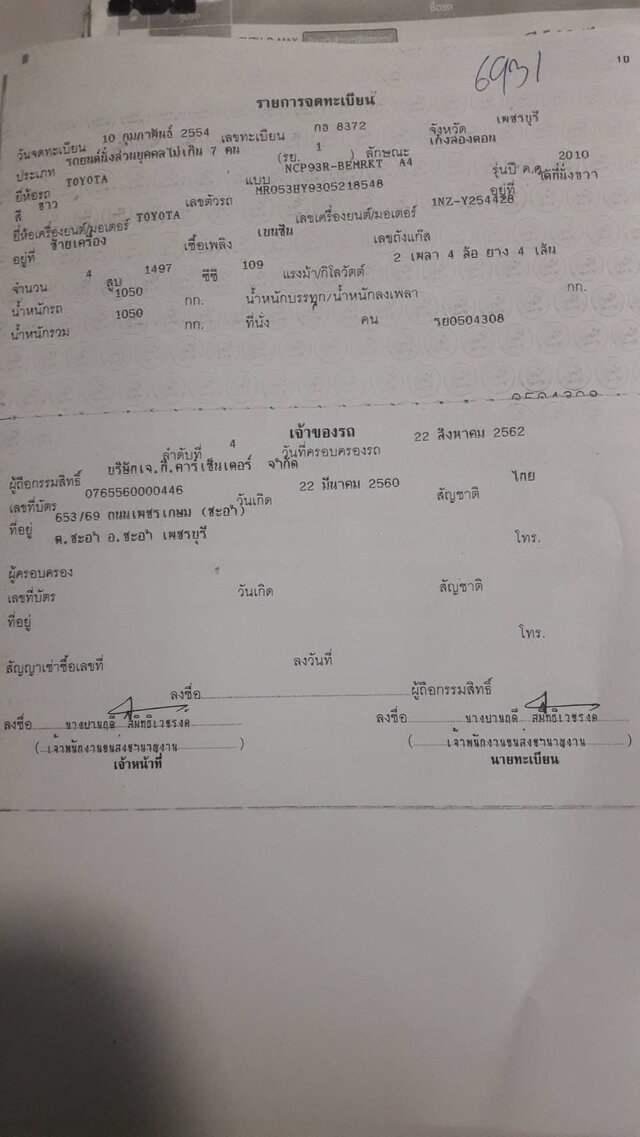 6931
10
รายการจดทะเบียน
วันจดทะเบียน 10 กุมภาพันธ์ 2554 เลขทะเบียน กธ 8372 จังหวัด เพชรบุรี
ประเภท รถยนต์นั่งส่วนบุคคลไม่เกิน 7 คน (รย. 1 ) ลักษณะ เก๋งสองตอน
ยี่ห้อรถ TOYOTA แบบ NCP93R-BEMRKT A4 รุ่นปี ค.ศ. 2010
สี ขาว เลขตัวรถ MR053HY9305218548 อยู่ที่ ใต้ที่นั่งขวา
ยี่ห้อเครื่องยนต์/มอเตอร์ TOYOTA เลขเครื่องยนต์/มอเตอร์ 1NZ-Y254428
อยู่ที่ ซ้ายเครื่อง เชื้อเพลิง เบนซิน เลขถังแก๊ส
จำนวน 4 สูบ 1497 ซีซี 109 แรงม้า/กิโลวัตต์ 2 เพลา 4 ล้อ ยาง 4 เส้น
น้ำหนักรถ 1050 กก. น้ำหนักบรรทุก/น้ำหนักลงเพลา กก.
น้ำหนักรวม 1050 กก. ที่นั่ง คน รย0504308
เจ้าของรถ
ลำดับที่ 4 วันที่ครอบครองรถ 22 สิงหาคม 2562
ผู้ถือกรรมสิทธิ์ บริษัทเจ.ที.คาร์เซ็นเตอร์ จำกัด
เลขที่บัตร 0765560000446 วันเกิด 22 มีนาคม 2560 สัญชาติ ไทย
ที่อยู่ 653/69 ถนนเพชรเกษม (ชะอำ)
ต.ชะอำ อ.ชะอำ เพชรบุรี โทร.
ผู้ครอบครอง
เลขที่บัตร วันเกิด สัญชาติ
ที่อยู่
โทร.
สัญญาเช่าซื้อเลขที่ ลงวันที่
ลงชื่อ ผู้ถือกรรมสิทธิ์
ลงชื่อ นางปานฤดี สมิทธิเวชรงค์ ลงชื่อ นางปานฤดี สมิทธิเวชรงค์
( เจ้าพนักงานขนส่งชำนาญงาน ) ( เจ้าพนักงานขนส่งชำนาญงาน )
เจ้าหน้าที่ นายทะเบียน